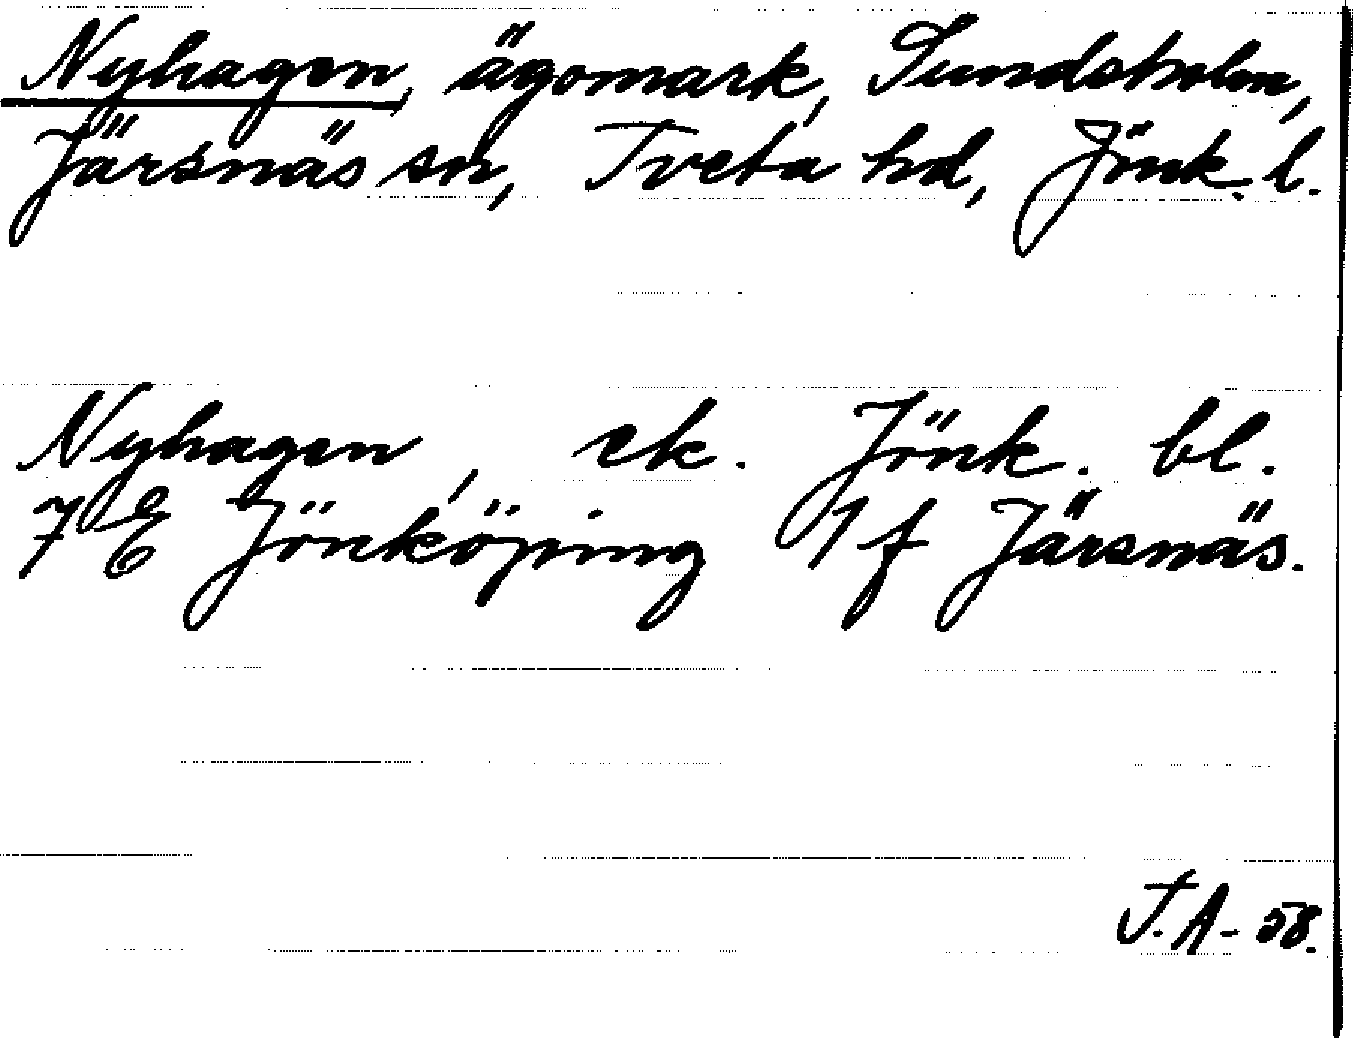 Nyhagen, ägomark, Sundsholm,
Järsnäs sn, Tveta hd, Jönk. l.
Nyhagen, ek. Jönk. bl.
7 E Jönköping 1 f Järsnäs.
J.A- 58.